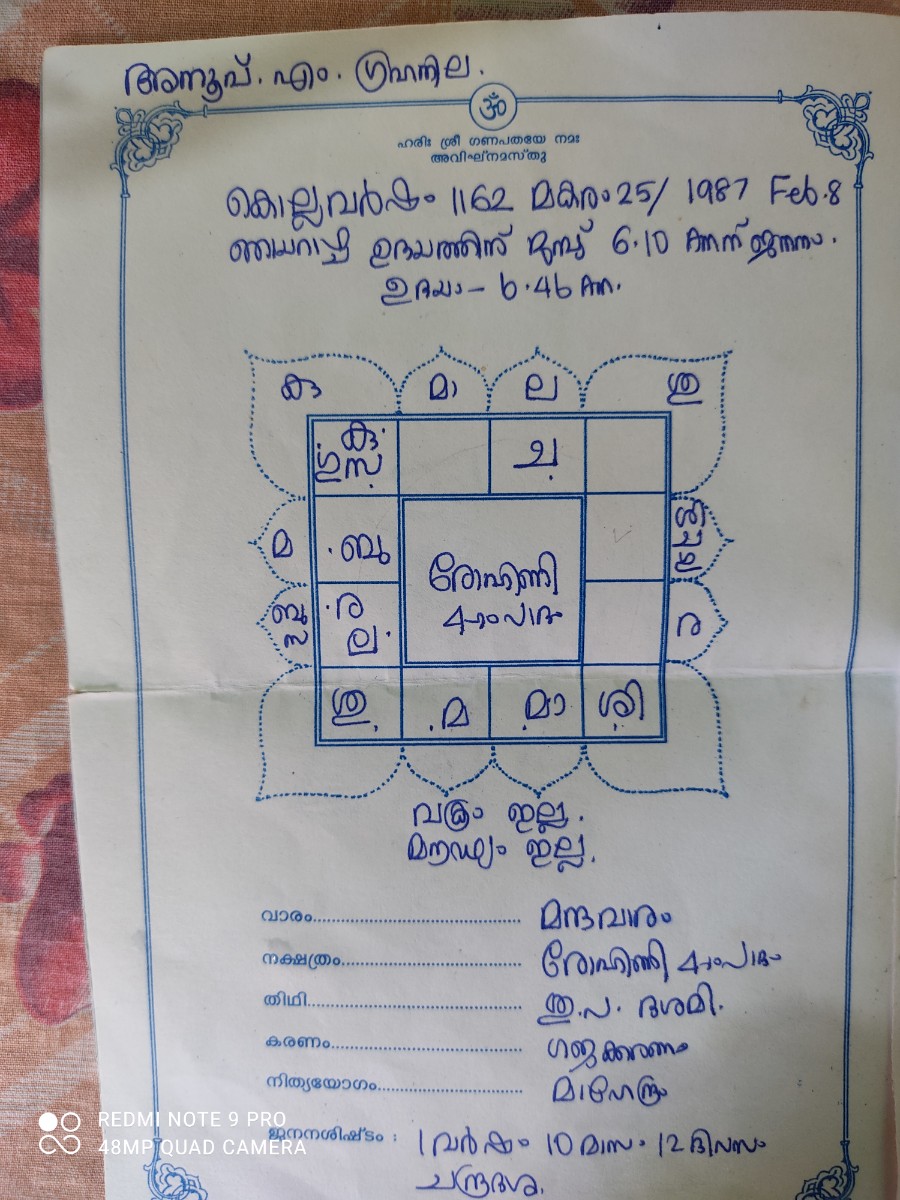 അനൂപ്. എം. ഗ്രഹനില.
ॐ
ഹരിഃ ശ്രീ ഗണപതയേ നമഃ
അവിഘ്നമസ്തു
കൊല്ലവർഷം 1162 മകരം 25/ 1987 Feb.8
ഞായറാഴ്ച ഉദയത്തിന് മുമ്പ് 6.10 Amന് ജനനം.
ഉദയം - 6.46 Am.
കു മാ ല ശു
കു. ച
ഗു സ
മ ബു
രോഹിണി
4ാംപാദം
ബു
സ
ര ര
ല
ശു മ മാ ശി
വക്രം ഇല്ല.
മൗഢ്യം ഇല്ല.
വാരം മന്ദവാരം
നക്ഷത്രം രോഹിണി 4ാംപാദം
തിഥി ശു.പ. ദശമി.
കരണം ഗജകരണം
നിത്യയോഗം മാഹേന്ദ്രം
ജനനശിഷ്ടം : 1 വർഷം 10 മാസം 12 ദിവസം
ചന്ദ്രദശ.
REDMI NOTE 9 PRO
48MP QUAD CAMERA